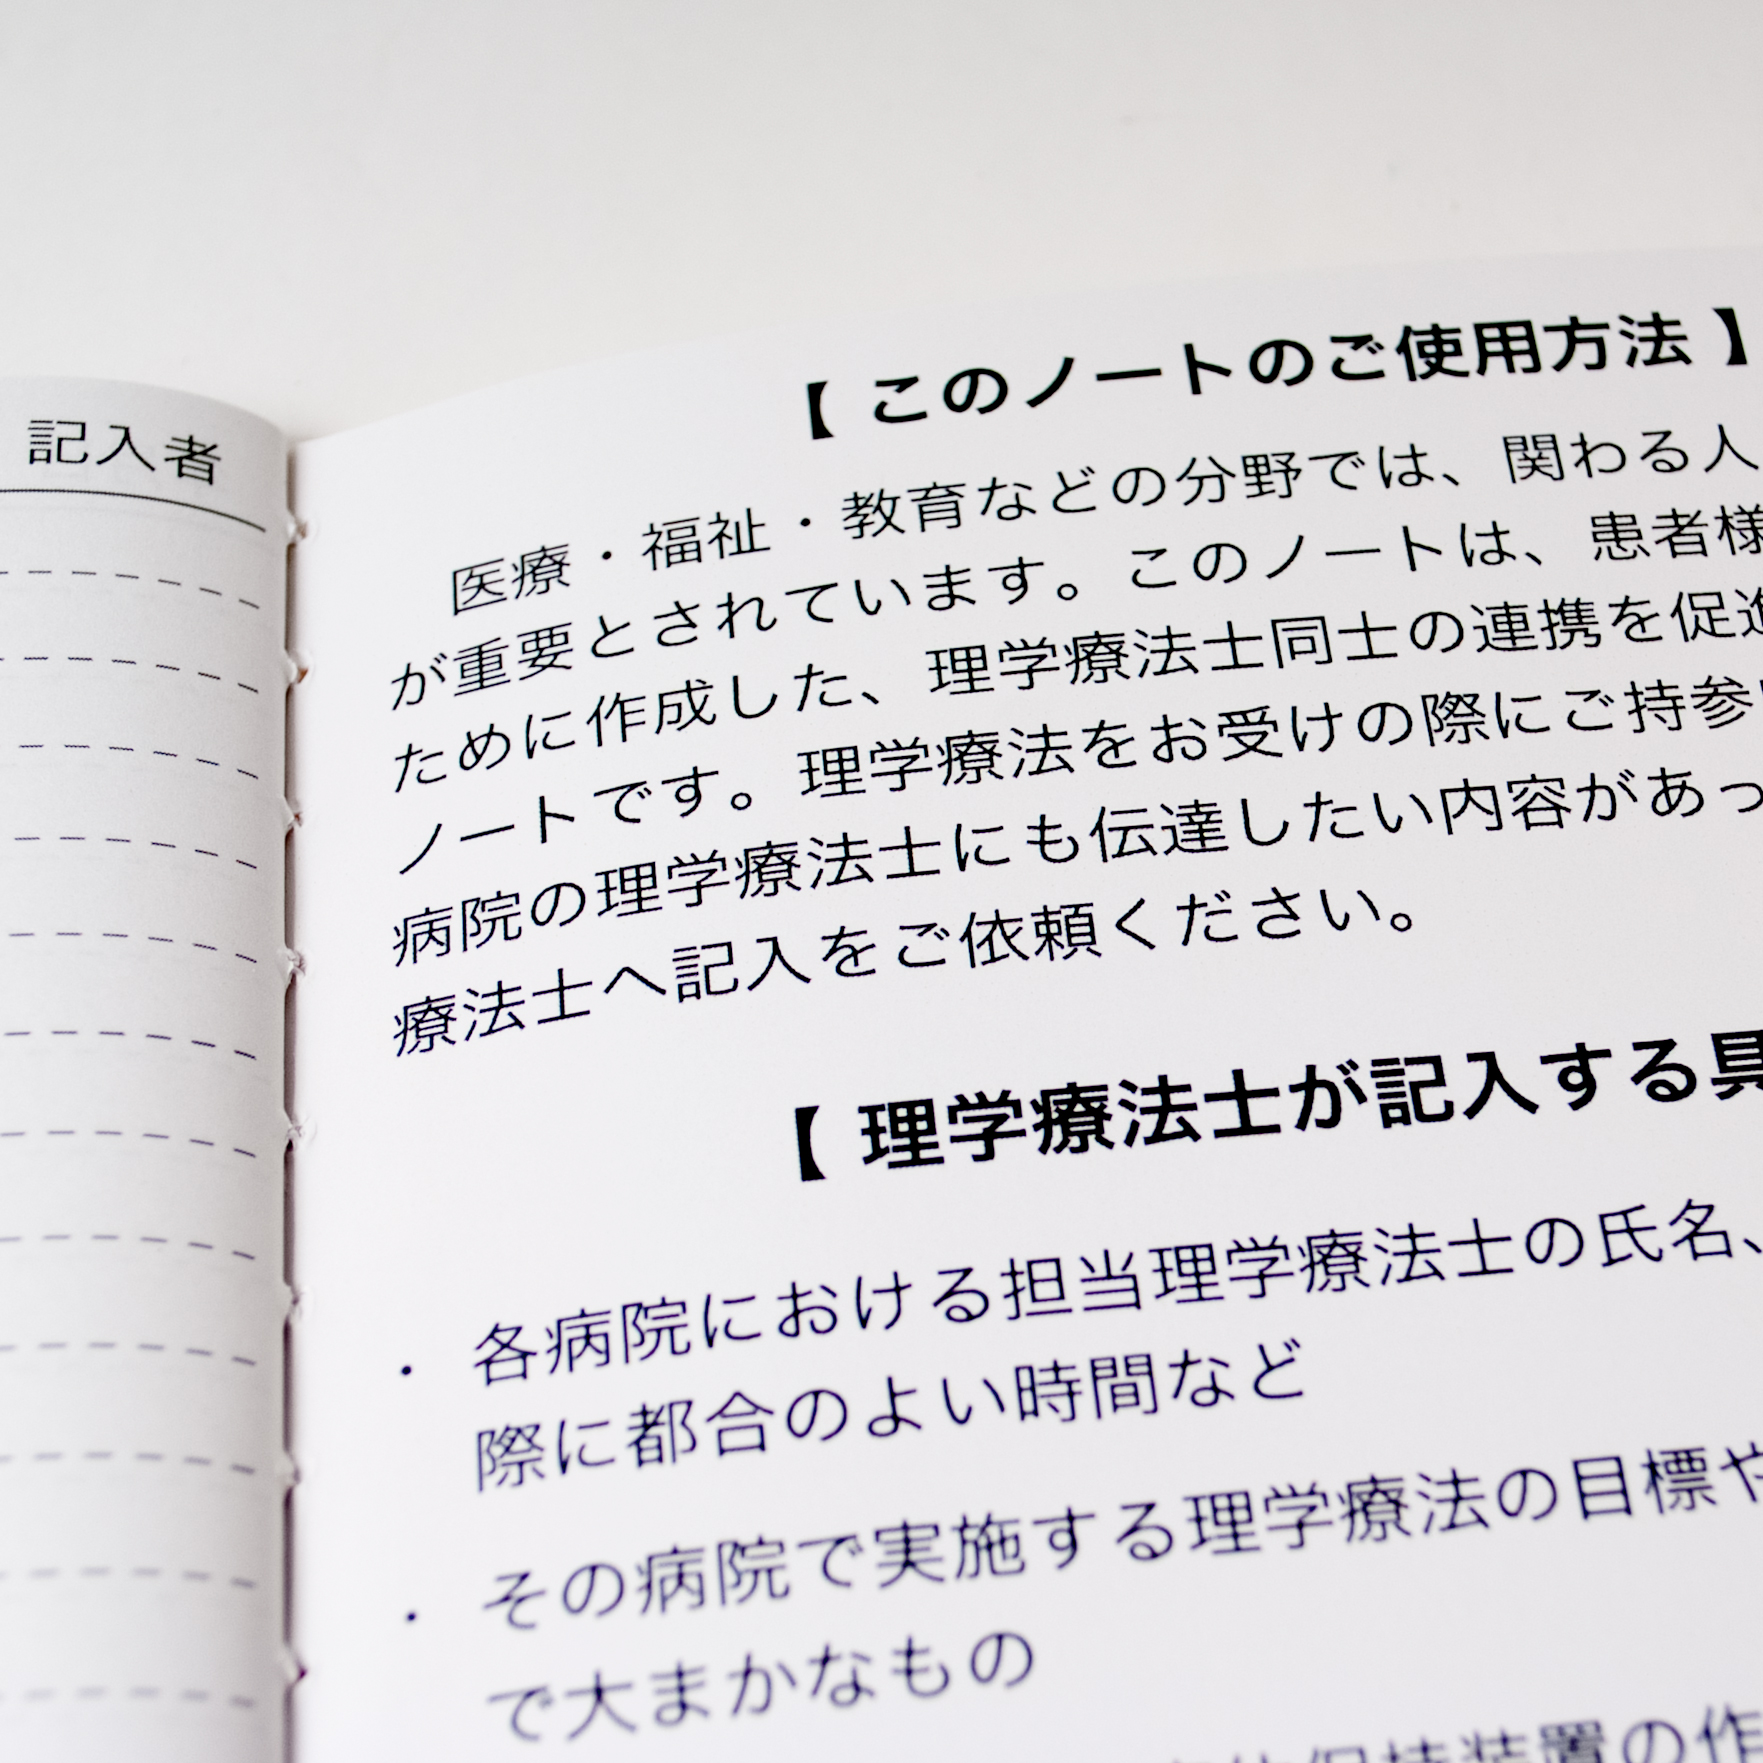 記入者
【 このノートのご使用方法 】
医療・福祉・教育などの分野では、関わる人
が重要とされています。このノートは、患者様
ために作成した、理学療法士同士の連携を促進
ノートです。理学療法をお受けの際にご持参
病院の理学療法士にも伝達したい内容があっ
療法士へ記入をご依頼ください。
【 理学療法士が記入する具
・ 各病院における担当理学療法士の氏名、
際に都合のよい時間など
・ その病院で実施する理学療法の目標や
で大まかなもの
保持装置の作